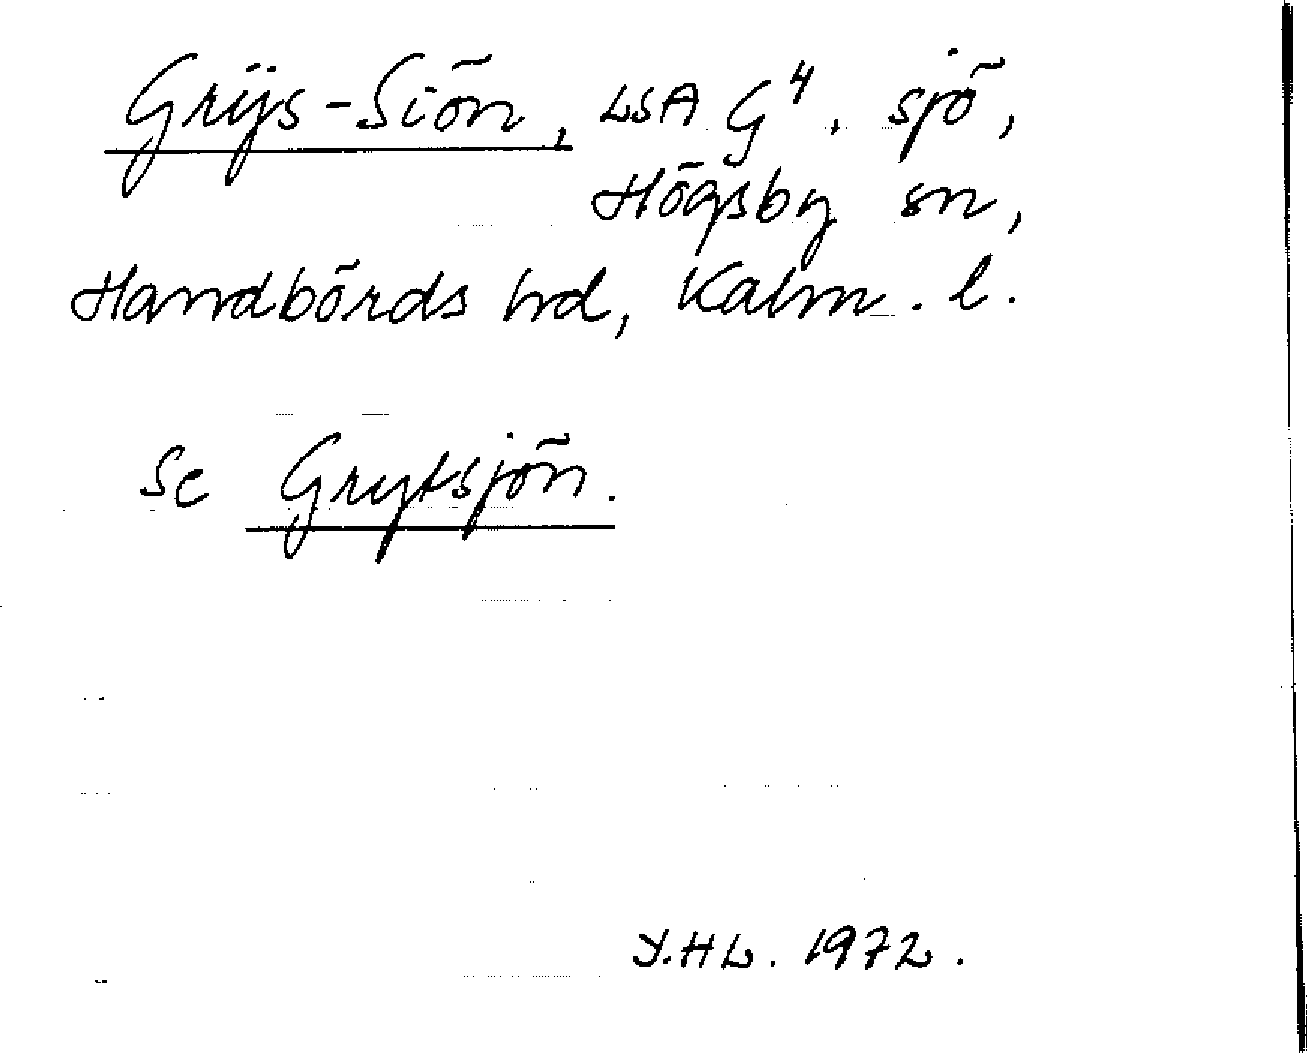 Grÿs-Siön, LSA G⁴. sjö,
Högsby sn,
Handbörds hd, Kalm. l.
Se Grytsjön.
Y.HL. 1972.